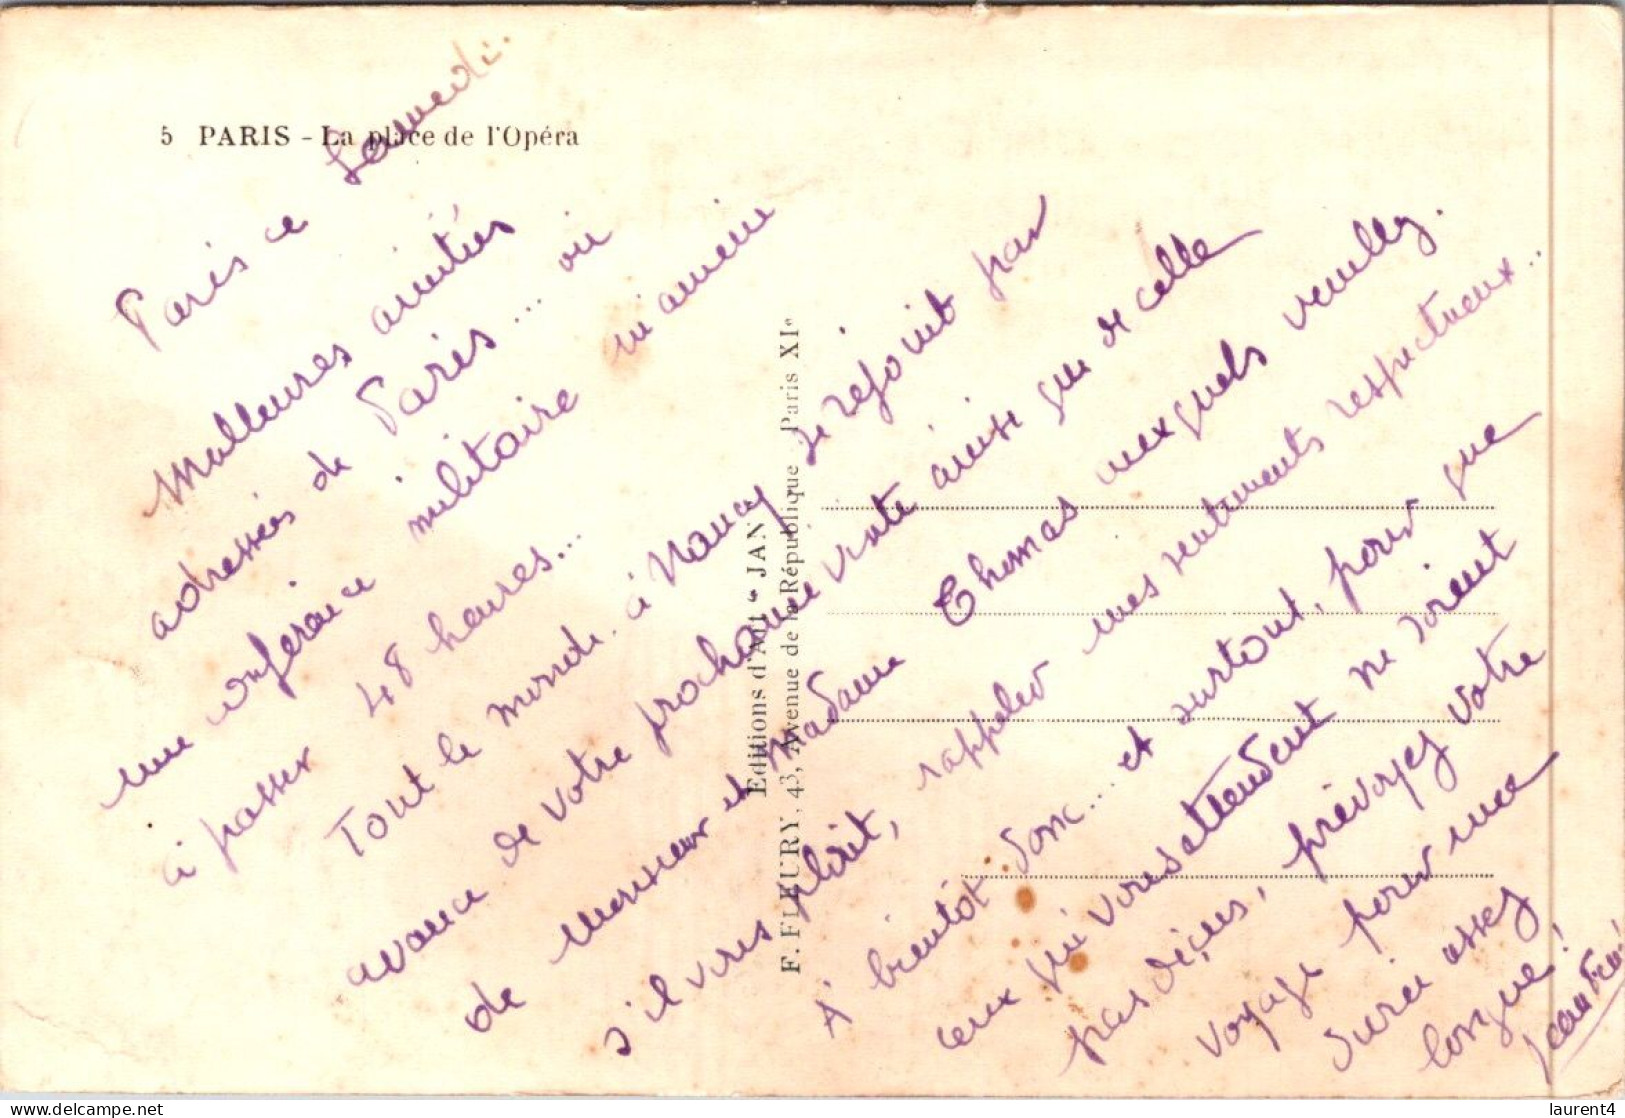 5 PARIS - La place de l'Opéra
Paris ce Samedi.
Meilleures amitiés
adressées de Paris... où
une conférence militaire m'amène
à passer 48 heures...
Tout le monde à Nancy se réjouit par
avance de votre prochaine visite ainsi que de celle
de Monsieur et Madame Thomas auxquels veuillez
s'il vous plaît, rappeler mes sentiments respectueux...
À bientôt donc.... et surtout, pour que
ceux qui vous attendent ne soient
pas déçus, prévoyez votre
voyage pour une
durée assez
longue!
Editions d'Art JAN
F. FLEURY, 43, Avenue de la République Paris XIe
laurent4